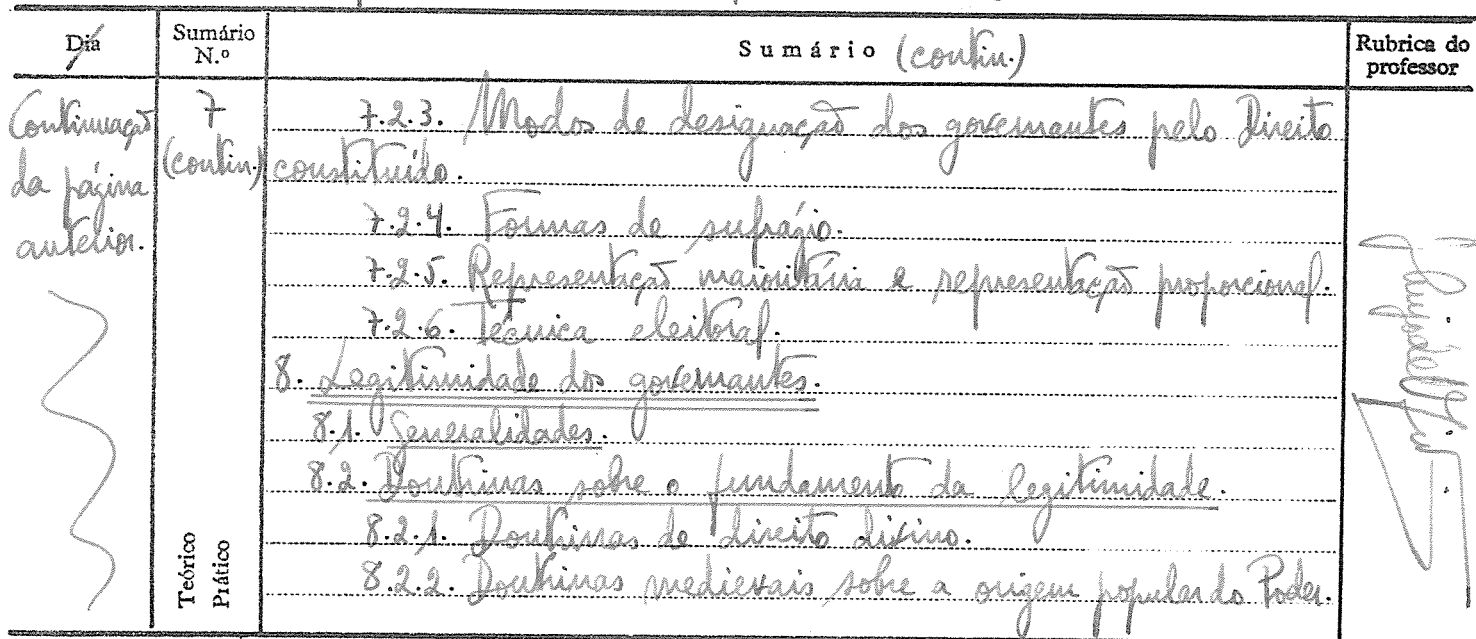 Dia
Sumário N.º
Sumário (contin.)
Rubrica do professor
Continuação
da página
anterior.
7
(contin.)
7.2.3. Modos de designação dos governantes pelo Direito
constituído.
7.2.4. Formas de sufrágio.
7.2.5. Representação maioritária e representação proporcional.
7.2.6. Técnica eleitoral.
8. Legitimidade dos governantes.
8.1. Generalidades.
8.2. Doutrinas sobre o fundamento da legitimidade.
8.2.1. Doutrinas do direito divino.
8.2.2. Doutrinas medievais sobre a origem popular do Poder.
Teórico
Prático